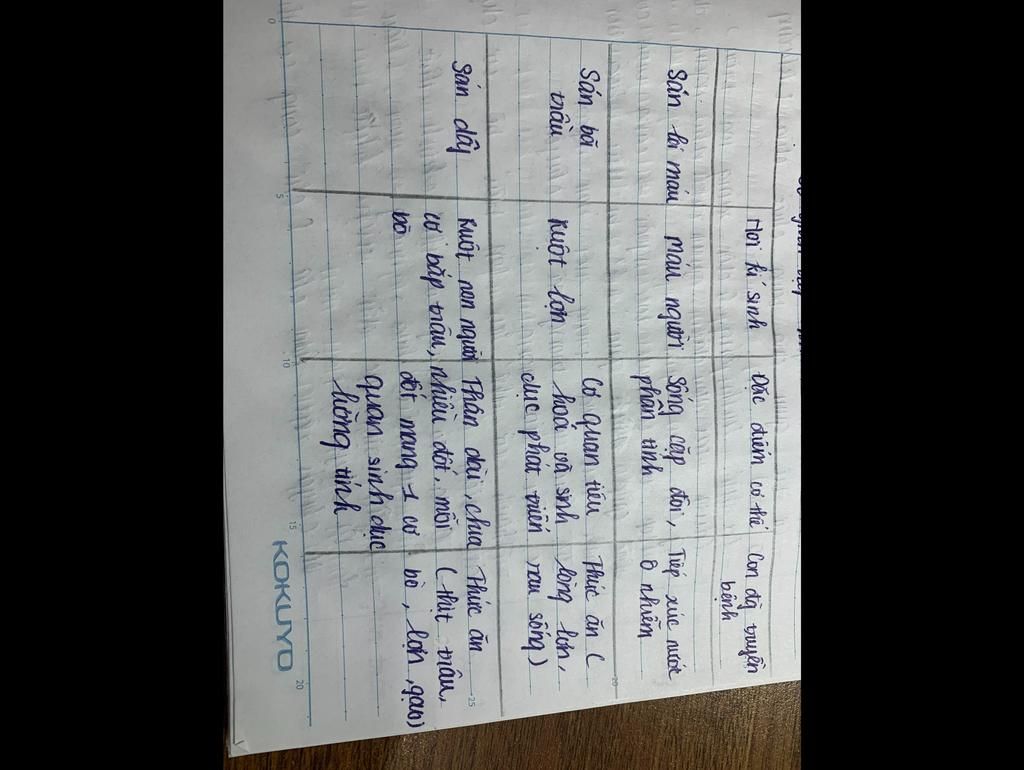 Nơi kí sinh
Đặc điểm cơ thể
Con đg truyền
bệnh
Sán lá máu
Máu người
Sống cặp đôi,
phân tính
Tiếp xúc nước
ô nhiễm
Sán bã
trầu
Ruột lợn
Cơ quan tiêu
hoá và sinh
dục phát triển
Thức ăn (
lòng lợn,
rau sống)
Sán dây
Ruột non người
cơ bắp trâu,
bò
Thân dài, chia
nhiều đốt, mỗi
đốt mang 1 cơ
quan sinh dục
lưỡng tính
Thức ăn
(thịt trâu,
bò, lợn, gạo)
KOKUYO
0
5
10
15
20
20
25